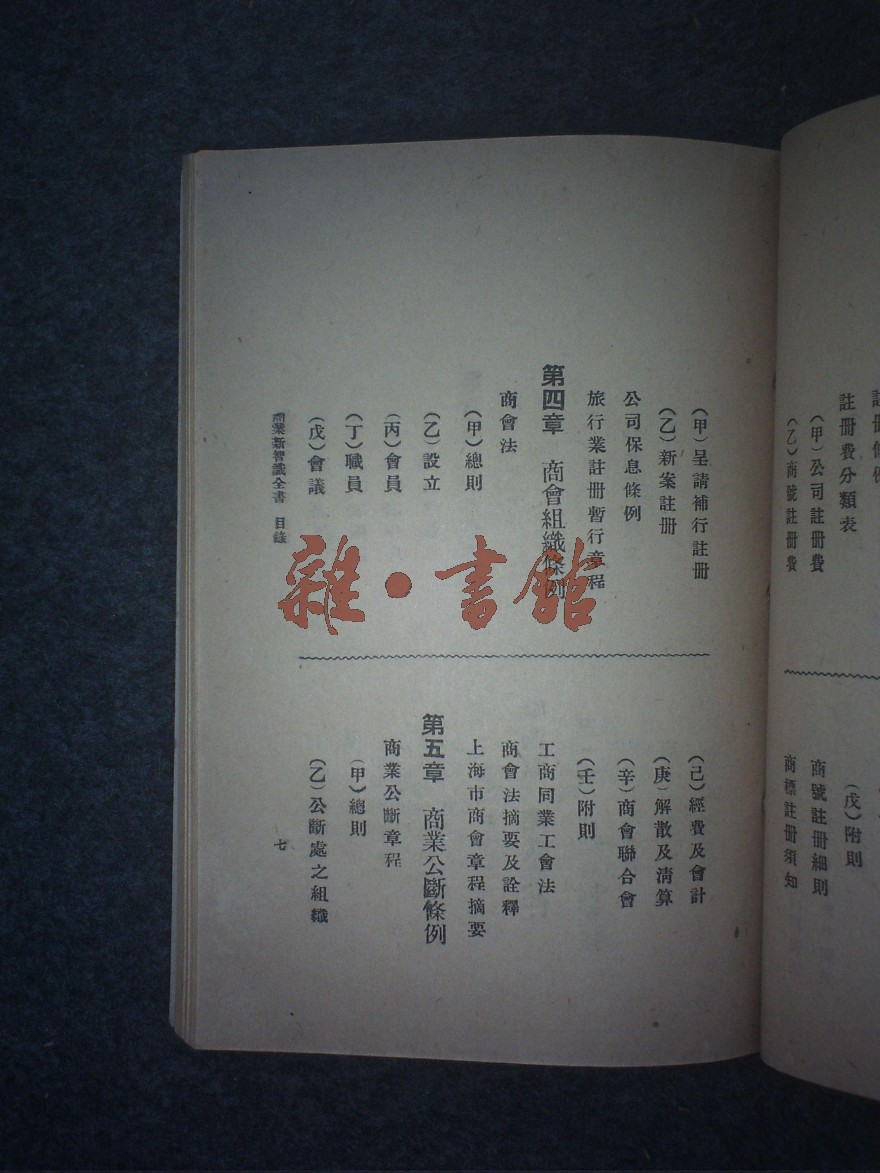 註册費分類表
（甲）公司註冊費
（乙）商號註冊費
（戊）附則
商號註冊細則
商標註冊須知
（甲）呈請補行註冊
（乙）新案註冊
公司保息條例
旅行業註冊暫行章程
第四章　商會組織條例
商會法
（甲）總則
（乙）設立
（丙）會員
（丁）職員
（戊）會議
（己）經費及會計
（庚）解散及清算
（辛）商會聯合會
（壬）附則
工商同業工會法
商會法摘要及詮釋
上海市商會章程摘要
第五章　商業公斷條例
商業公斷章程
（甲）總則
（乙）公斷處之組織
商業新智識全書　目錄
七
雜·書館